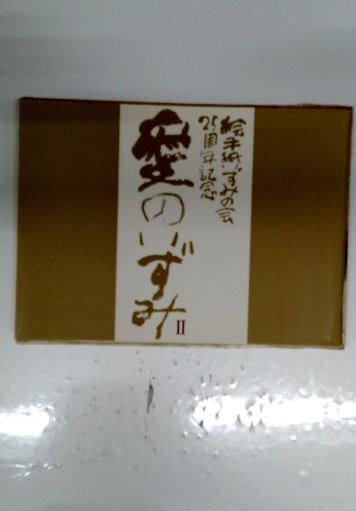 絵手紙いずみの会
25周年記念
愛のいずみ II